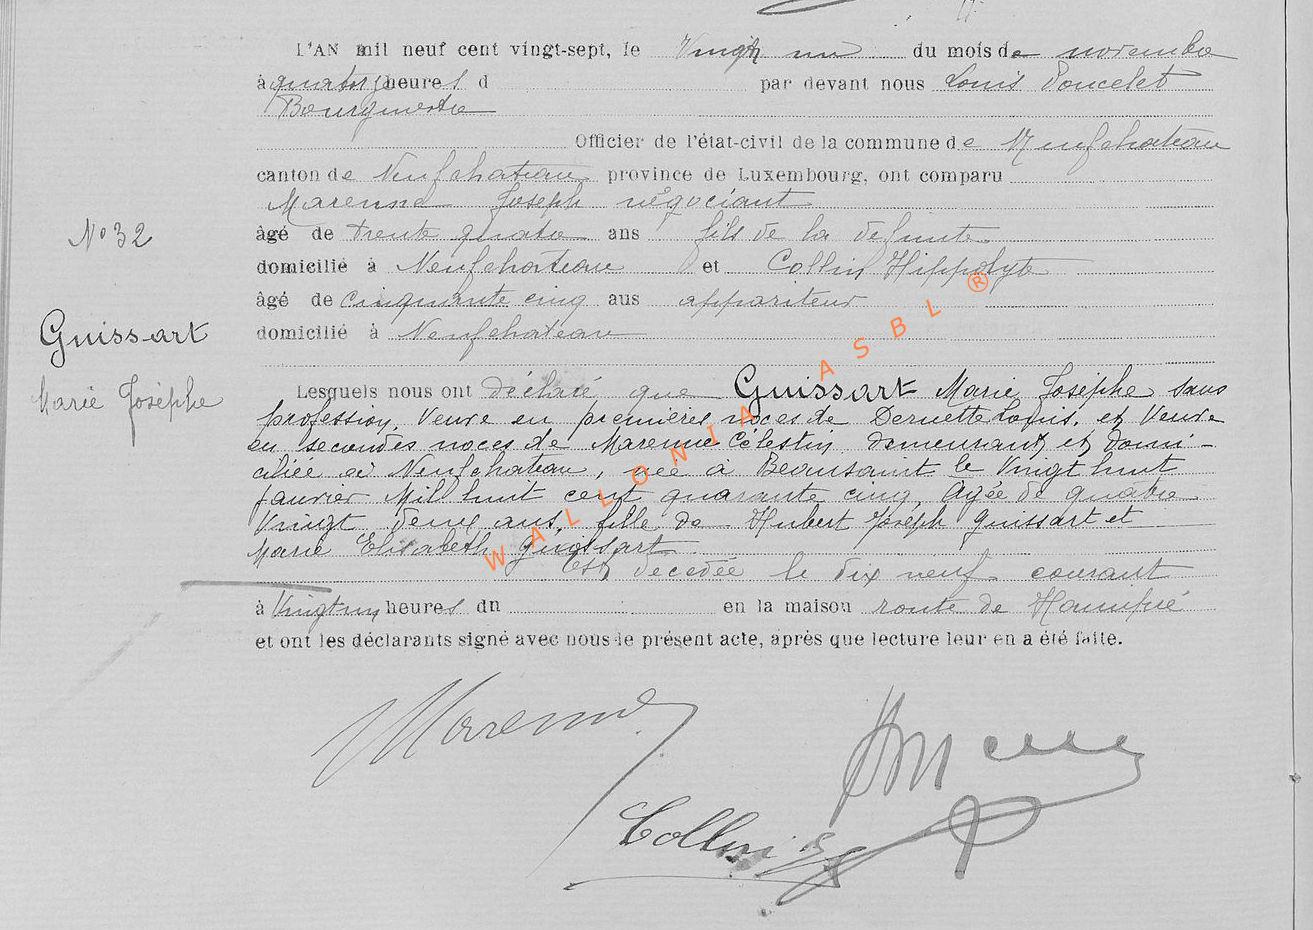 L'AN mil neuf cent vingt-sept, le Vingt un du mois de novembre
à quatorze heures d par devant nous Louis Poncelet
Bourgmestre
Officier de l'état-civil de la commune de Neufchateau
canton de Neufchateau province de Luxembourg, ont comparu
Marenne Joseph négociant
âgé de trente quatre ans fils de la défunte
N° 32
domicilié à Neufchateau et Collin Hippolyte
âgé de cinquante cinq ans appariteur
domicilié à Neufchateau
Guissart
Marie Josèphe
Lesquels nous ont déclaré que Guissart Marie Josèphe sans
profession, Veuve en premières noces de Dernette Louis, et Veuve
en secondes noces de Marenne Célestin, demeurant et domi-
ciliée à Neufchateau, née à Beausaint le Vingt huit
Janvier Mil huit cent quarante cinq, Agée de quatre
Vingt deux ans, fille de Hubert Joséph Guissart et
Marie Elisabeth Guissart
Est décédée le dix neuf courant
à Vingt un heures du en la maison route de Hamipré
et ont les déclarants signé avec nous le présent acte, après que lecture leur en a été faite.
Marenne
Collin
WALLONIA ASBL ®